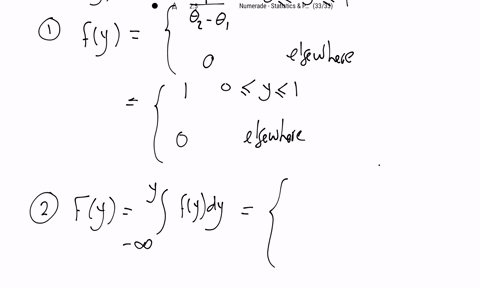 Numerade - Statistics & P... (33/35)
① f(y) = { 1/(θ₂ - θ₁)
0 elsewhere
= { 1 0 ≤ y ≤ 1
0 elsewhere
② F(y) = ∫_{-∞}^{y} f(y)dy = {